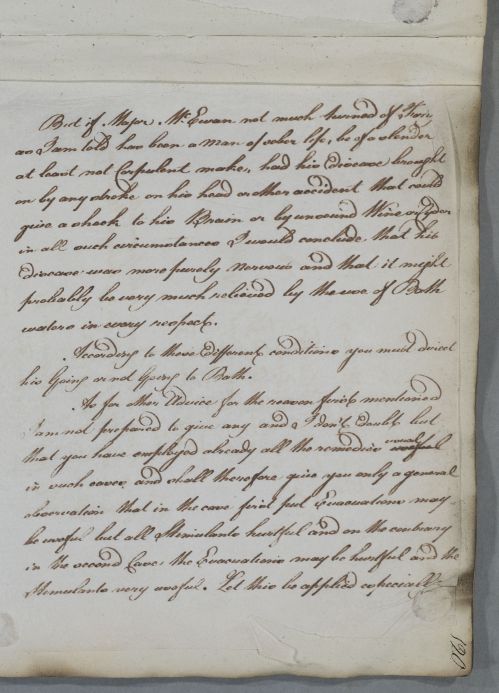 But if Major McEwan not much turned of Forty
as I am told has been a man of sober life, be of a slender
at least not Corpulent make, had his disease brought
on by any stroke on his head or other accident that could
give a shock to his Brain or by unsound Wine or Cyder
in all such circumstances I would conclude that his
disease was more purely nervous and that it might
probably be very much relieved by the use of Bath
waters in every respect.
According to these different conditions you must direct
his Going or not Going to Bath.
As for other Advice for the reason first mentioned
I am not prepared to give any and I don't doubt but
that you have employed already all the remedies usual
in such cases and shall therefore give you only a general
observation that in the case first put Evacuations may
be useful but all Stimulants hurtful and on the contrary
in the second Case, the Evacuations may be hurtful and the
Stimulants very useful. Let this be applied especially
190